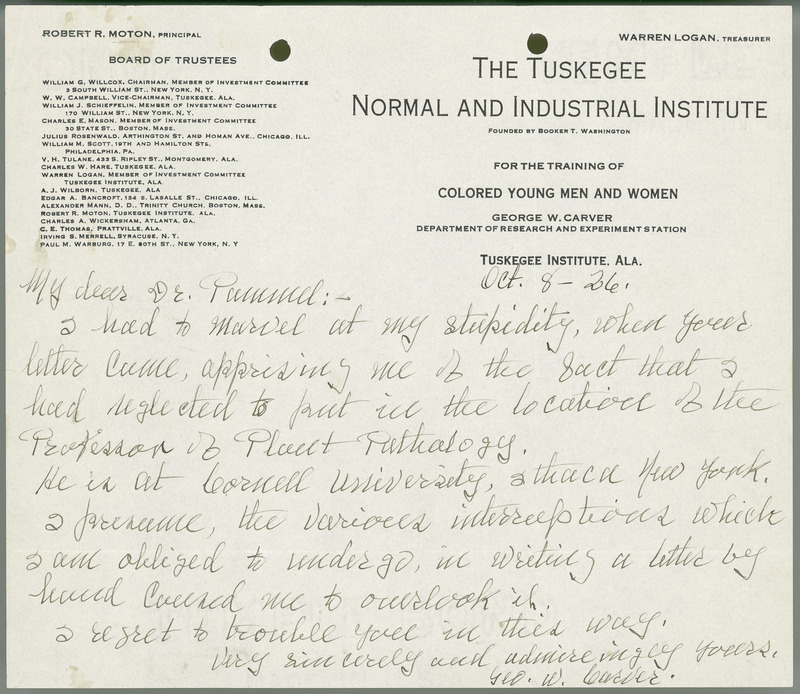 ROBERT R. MOTON, PRINCIPAL
WARREN LOGAN, TREASURER
BOARD OF TRUSTEES
WILLIAM G. WILLCOX, CHAIRMAN, MEMBER OF INVESTMENT COMMITTEE
3 SOUTH WILLIAM ST., NEW YORK, N. Y.
W. W. CAMPBELL, VICE-CHAIRMAN, TUSKEGEE, ALA.
WILLIAM J. SCHIEFFELIN, MEMBER OF INVESTMENT COMMITTEE
170 WILLIAM ST., NEW YORK, N. Y.
CHARLES E. MASON, MEMBER OF INVESTMENT COMMITTEE
30 STATE ST., BOSTON, MASS.
JULIUS ROSENWALD, ARTHINGTON ST. AND HOMAN AVE., CHICAGO, ILL.
WILLIAM M. SCOTT, 19TH AND HAMILTON STS.
PHILADELPHIA, PA.
V. H. TULANE, 433 S. RIPLEY ST., MONTGOMERY, ALA.
CHARLES W. HARE, TUSKEGEE, ALA.
WARREN LOGAN, MEMBER OF INVESTMENT COMMITTEE
TUSKEGEE INSTITUTE, ALA.
A. J. WILBORN, TUSKEGEE, ALA
EDGAR A. BANCROFT, 134 S. LASALLE ST., CHICAGO, ILL.
ALEXANDER MANN, D. D., TRINITY CHURCH, BOSTON, MASS.
ROBERT R. MOTON, TUSKEGEE INSTITUTE, ALA.
CHARLES A. WICKERSHAM, ATLANTA, GA.
C. E. THOMAS, PRATTVILLE, ALA.
IRVING S. MERRELL, SYRACUSE, N. Y.
PAUL M. WARBURG, 17 E. 80TH ST., NEW YORK, N. Y
THE TUSKEGEE
NORMAL AND INDUSTRIAL INSTITUTE
FOUNDED BY BOOKER T. WASHINGTON
FOR THE TRAINING OF
COLORED YOUNG MEN AND WOMEN
GEORGE W. CARVER
DEPARTMENT OF RESEARCH AND EXPERIMENT STATION
TUSKEGEE INSTITUTE, ALA.
Oct. 8 - 26.
My dear Dr. Pammel:-
I had to marvel at my stupidity, when your
letter came, apprising me of the fact that I
had neglected to put in the location of the
Professor of Plant Pathology.
He is at Cornell University, Ithaca New York.
I presume, the various interruptions which
I am obliged to undergo, in writing a letter by
hand caused me to overlook it.
I regret to trouble you in this way.
Very sincerely and admiringly yours,
Geo. W. Carver.